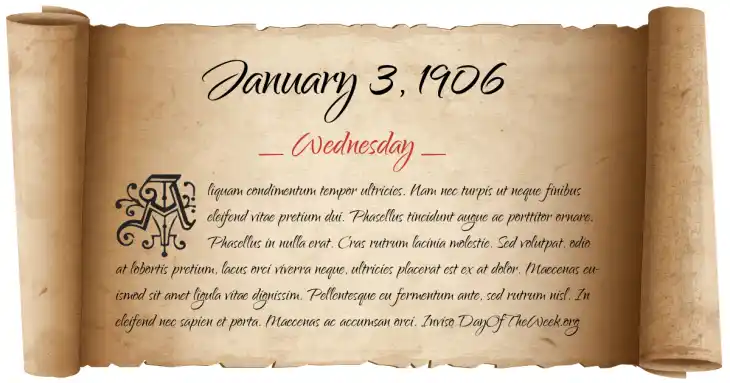 January 3, 1906
_ Wednesday _
Aliquam condimentum tempor ultricies. Nam nec turpis ut neque finibus
eleifend vitae pretium dui. Phasellus tincidunt augue ac porttitor ornare.
Phasellus in nulla erat. Cras rutrum lacinia molestie. Sed volutpat, odio
at lobortis pretium, lacus orci viverra neque, ultricies placerat est ex at dolor. Maecenas eu-
ismod sit amet ligula vitae dignissim. Pellentesque eu fermentum ante, sed rutrum nisl. In
eleifend nec sapien et porta. Maecenas ac accumsan orci. Inviso DayOfTheWeek.org